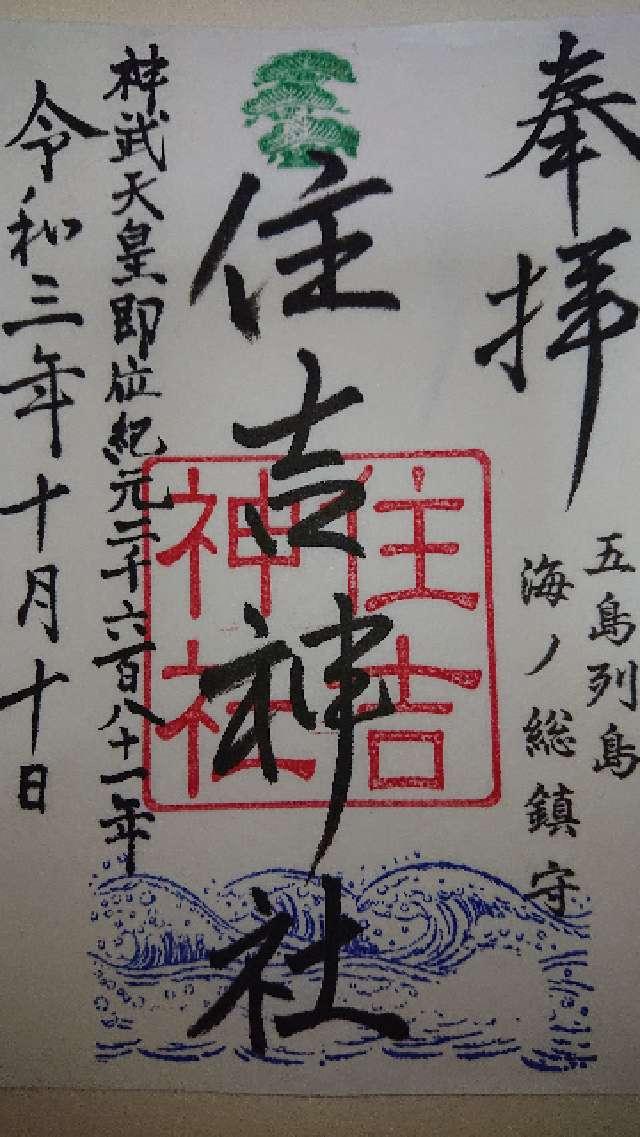 奉拝
五島列島
海ノ総鎮守
住吉神社
住吉
神社
神武天皇即位紀元二千六百八十一年
令和三年十月十日